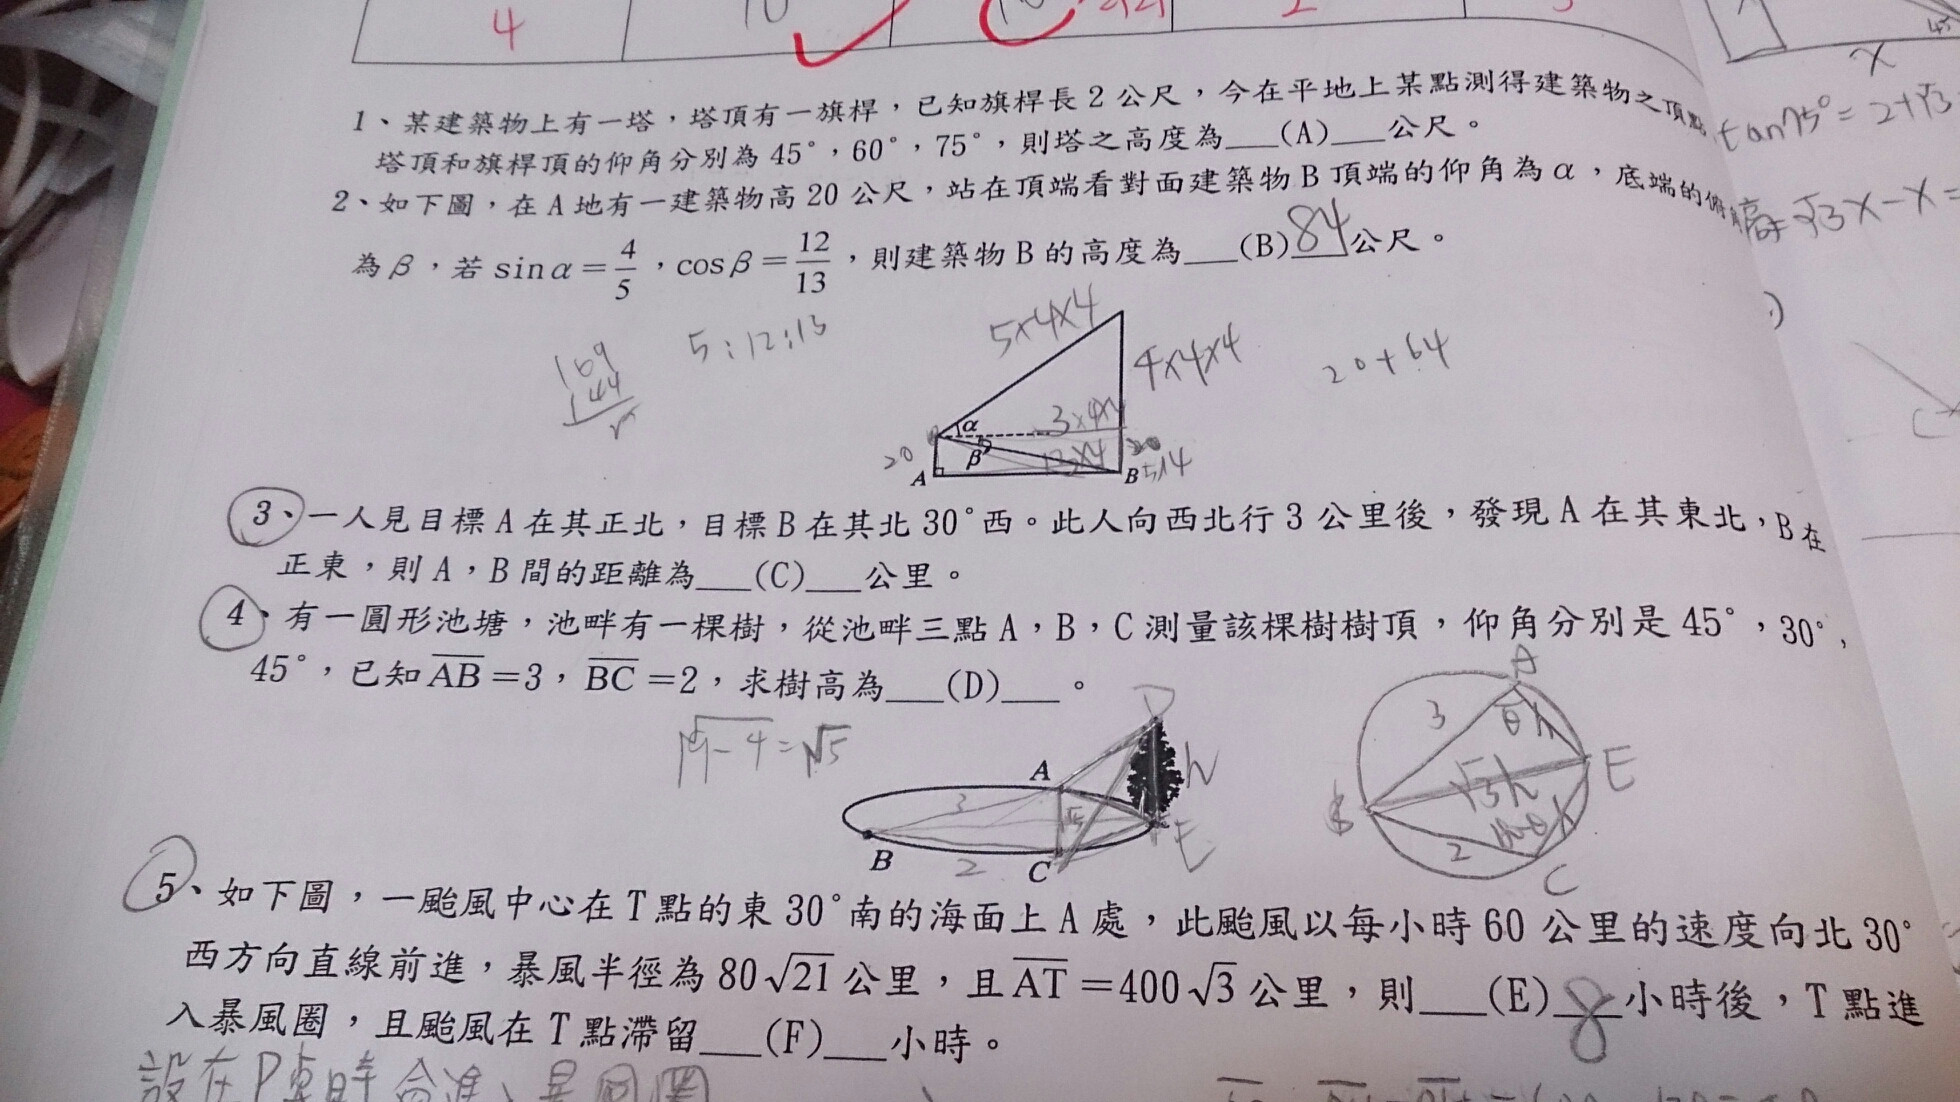 4 10 2
1、某建築物上有一塔,塔頂有一旗桿,已知旗桿長2公尺,今在平地上某點測得建築物之頂點
塔頂和旗桿頂的仰角分別為45°,60°,75°,則塔之高度為___(A)___公尺。
2、如下圖,在A地有一建築物高20公尺,站在頂端看對面建築物B頂端的仰角為α,底端的俯
為β,若sinα=4/5,cosβ=12/13,則建築物B的高度為___(B) 84 公尺。
169
144
5:12:13
5×4×4
4×4×4
20+64
α
β
20
A
B
3、一人見目標A在其正北,目標B在其北30°西。此人向西北行3公里後,發現A在其東北,B在
正東,則A,B間的距離為___(C)___公里。
4、有一圓形池塘,池畔有一棵樹,從池畔三點A,B,C測量該棵樹樹頂,仰角分別是45°,30°,
45°,已知AB=3,BC=2,求樹高為___(D)___。
√9-4=√5
A
B
C
D
E
h
3
2
A
3
θ
h
√3h
E
2
C
5、如下圖,一颱風中心在T點的東30°南的海面上A處,此颱風以每小時60公里的速度向北30°
西方向直線前進,暴風半徑為80√21公里,且AT=400√3公里,則___(E) 8 小時後,T點進
入暴風圈,且颱風在T點滯留___(F)___小時。
設在P點時會進入暴風圈
x
45
tan75°=2+√3
√3x-x=